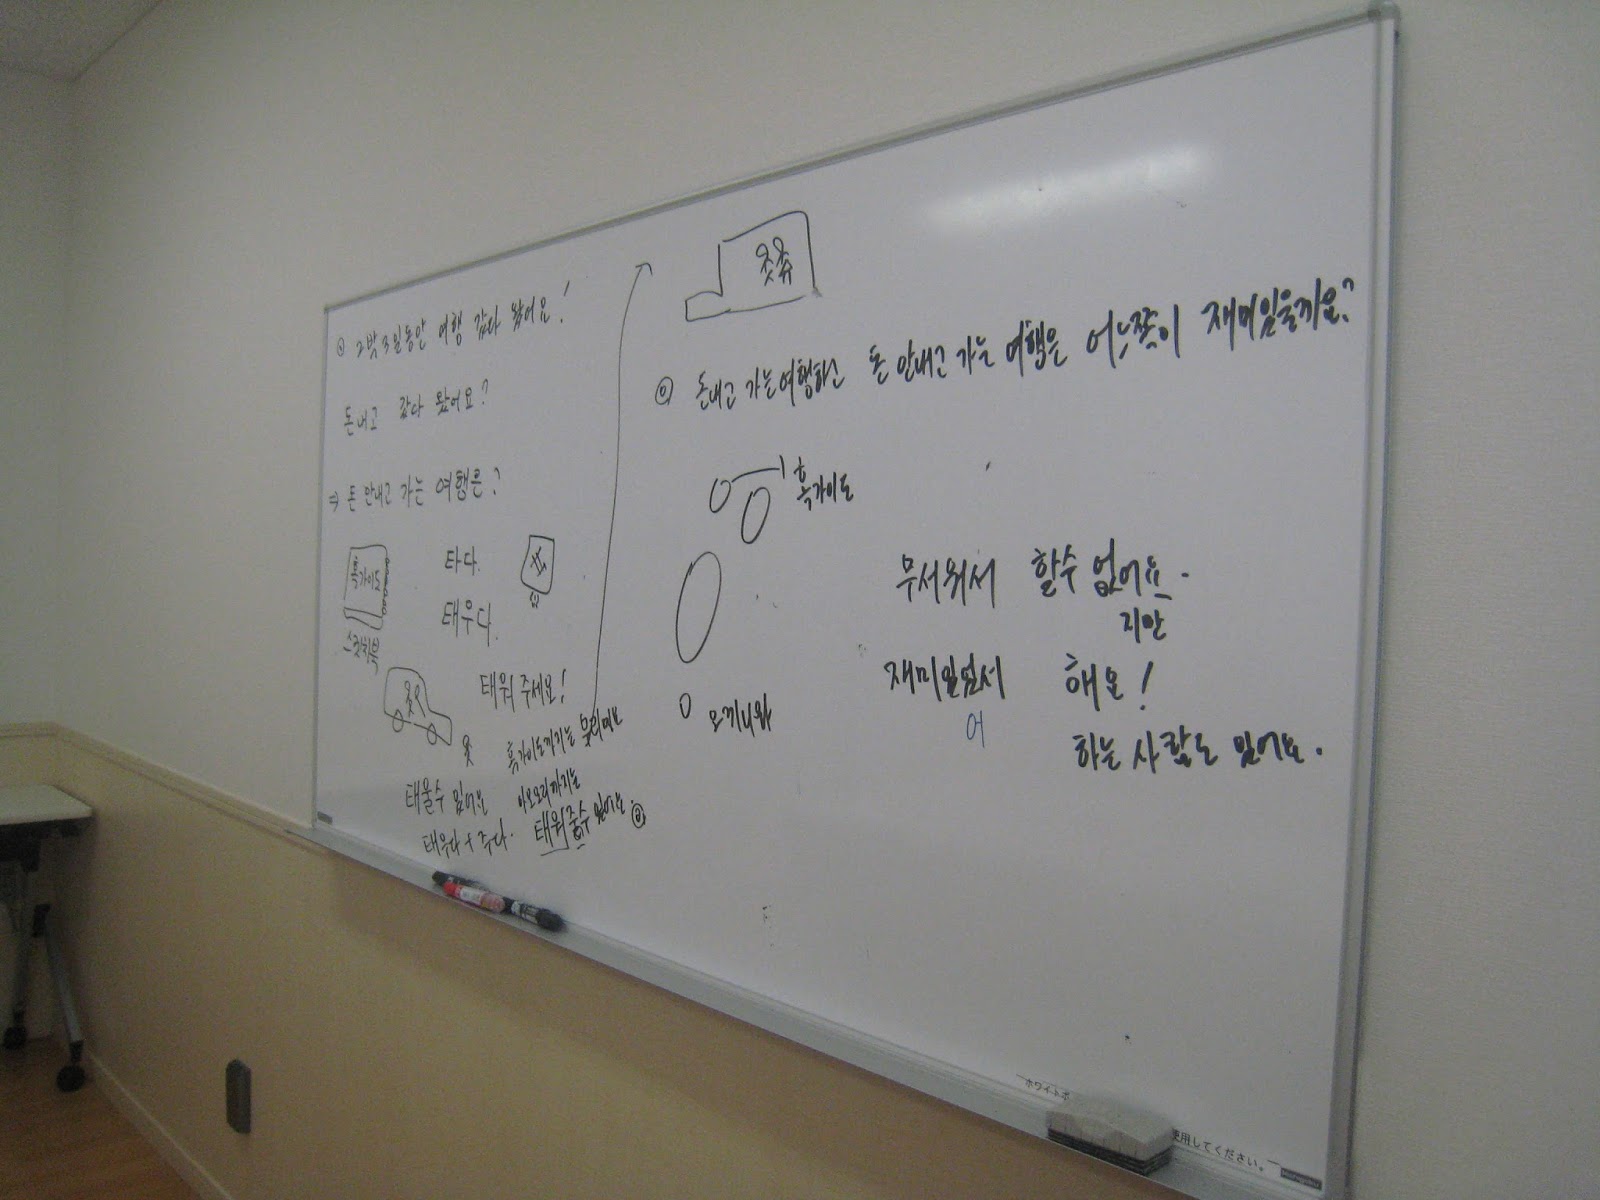 2박3일동안 여행 갔다 왔어요!
돈내고 갔다 왔어요?
⇒ 돈 안내고 가는 여행은?
혹가이도
스켓치북
타다.
태우다.
태워 주세요!
혹가이도까지는 무리에요
아오모리까지는
태울수 있어요
태우다 + 주다.
태워줄수 있어요.
돈내고 가는여행하고 돈 안내고 가는 여행은 어느쪽이 재미있을까요?
혹가이도
오끼나와
무서워서 할수 없어요.
지만
재미있서서 해요!
어
하는 사람도 있어요.
ホワイトボ
使用してください。